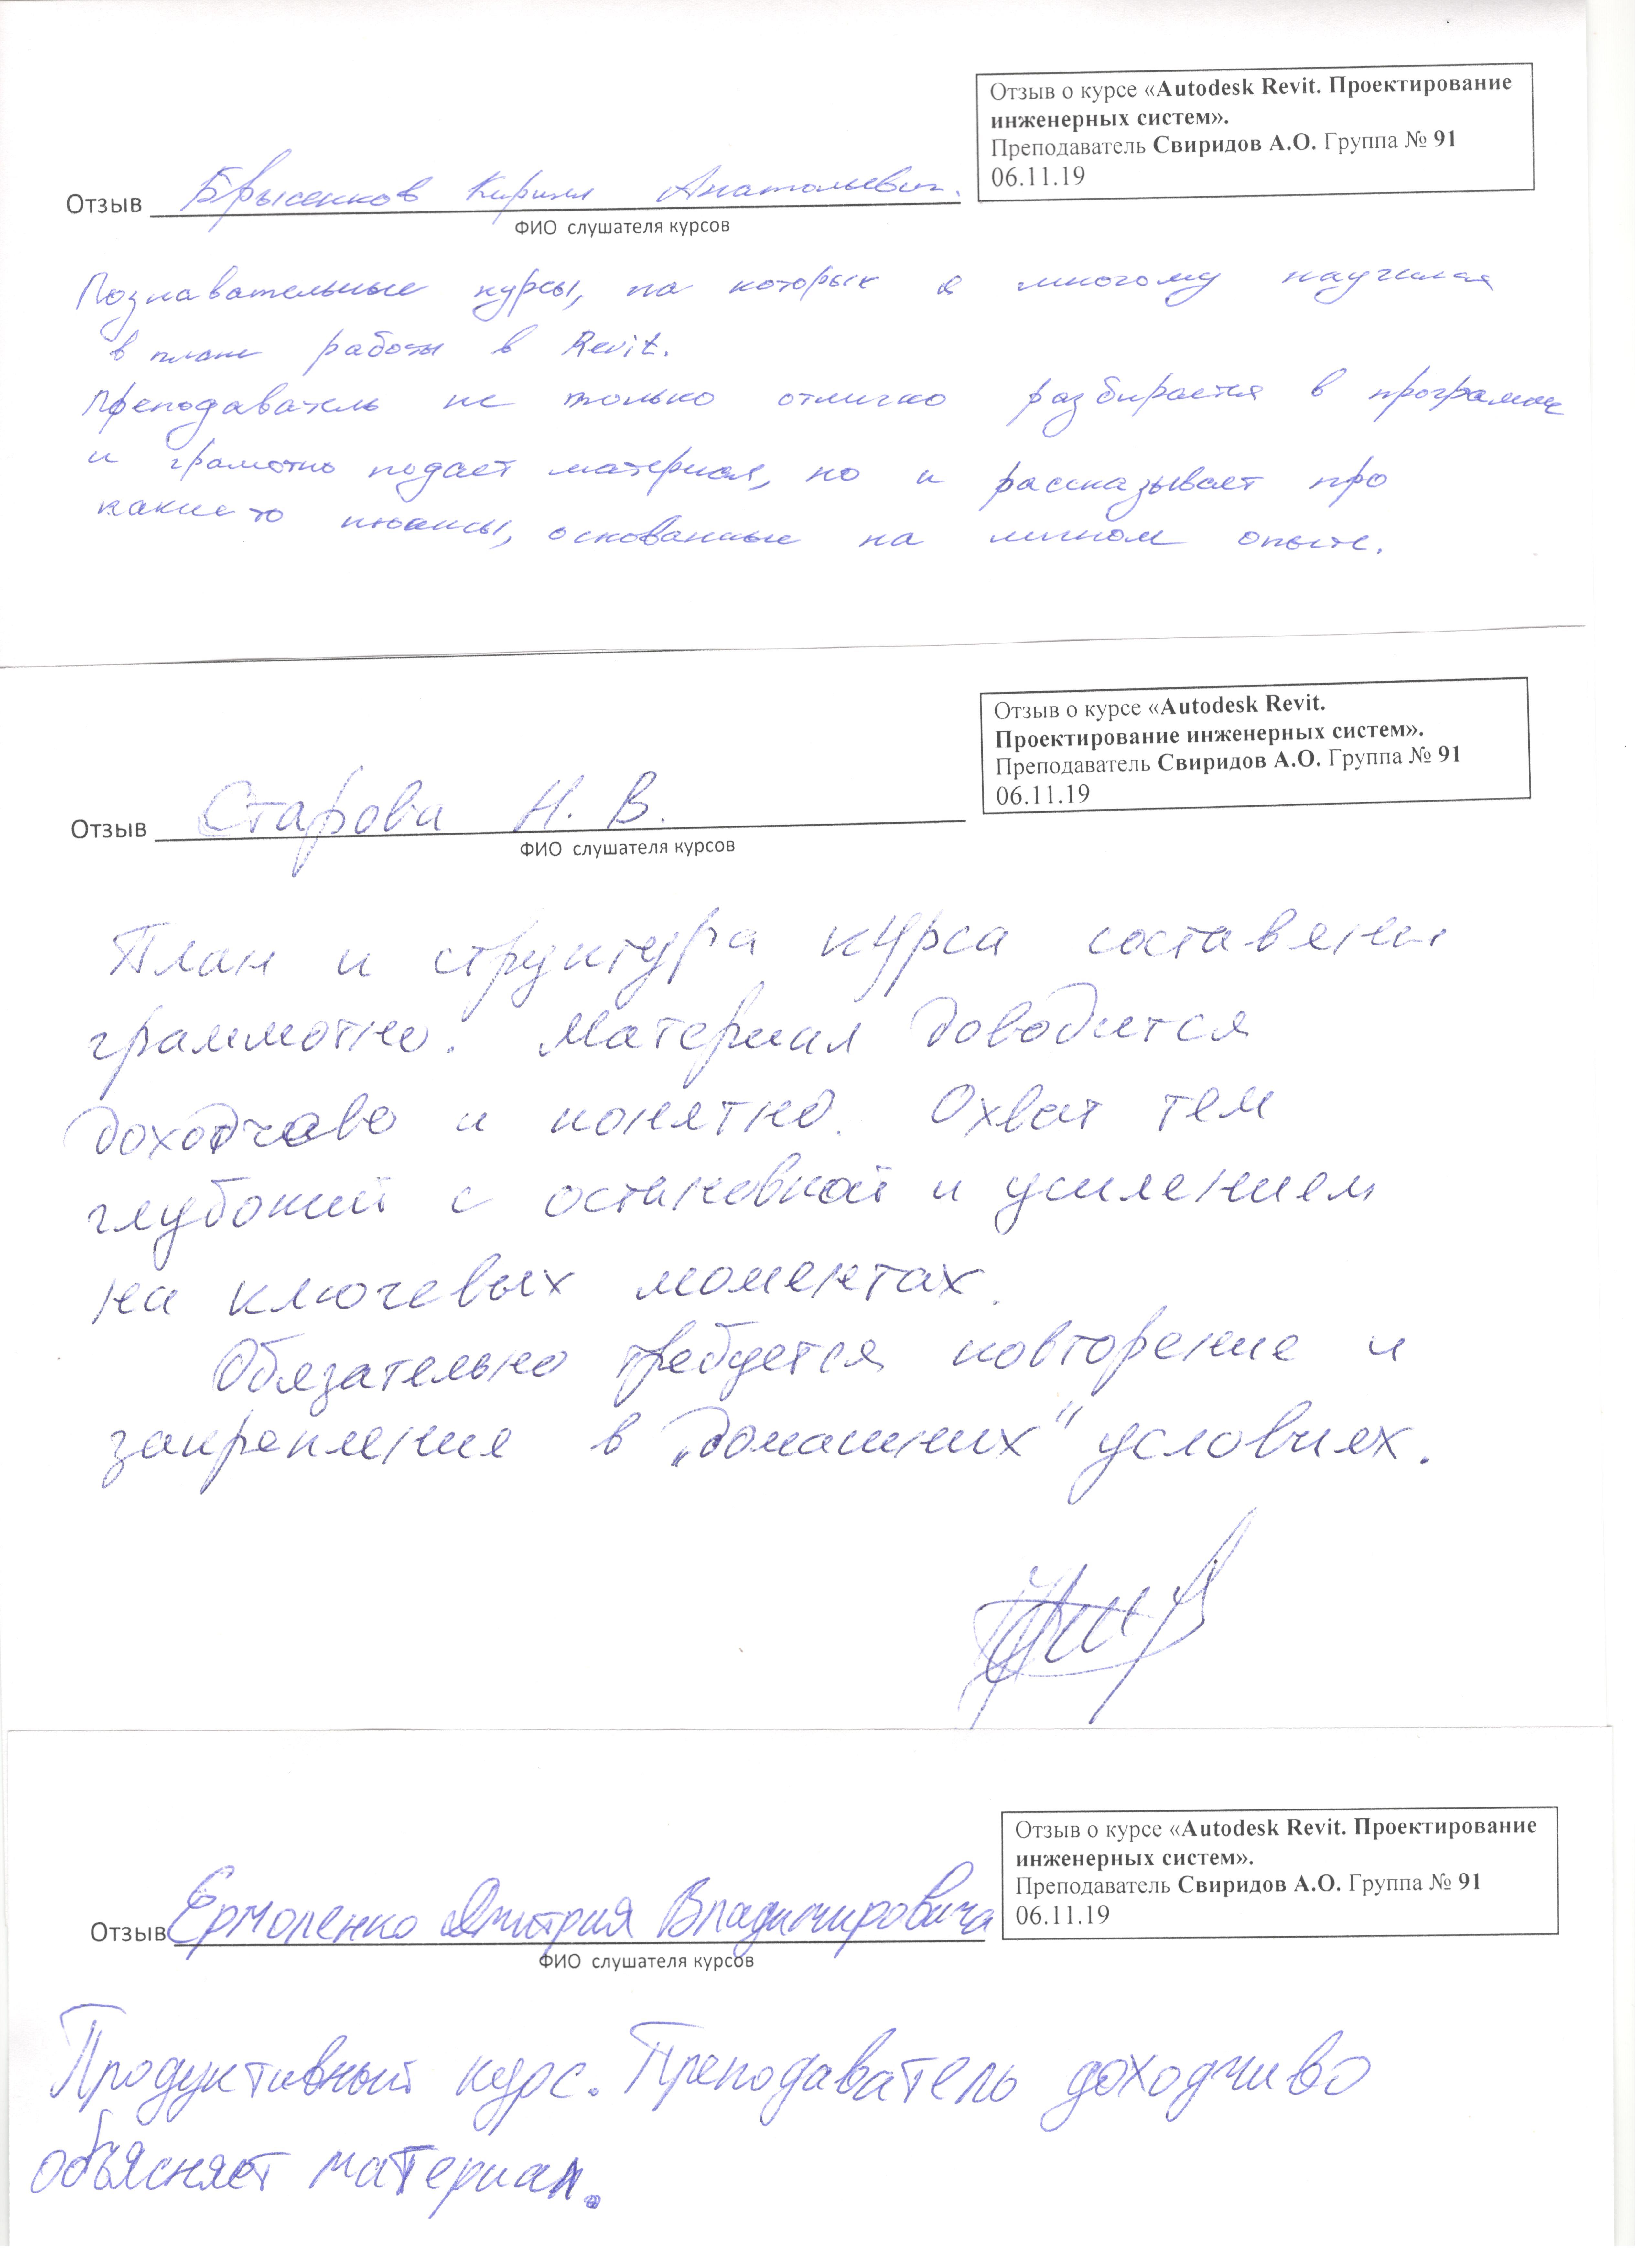 Отзыв о курсе «Autodesk Revit. Проектирование
инженерных систем».
Преподаватель Свиридов А.О. Группа № 91
06.11.19
Отзыв Брысенков Кирилл Анатольевич.
ФИО слушателя курсов
Познавательные курсы, на которых я многому научился
в плане работы в Revit.
Преподаватель не только отлично разбирается в программе
и грамотно подает материал, но и рассказывает про
какие то нюансы, основанные на личном опыте.
Отзыв о курсе «Autodesk Revit.
Проектирование инженерных систем».
Преподаватель Свиридов А.О. Группа № 91
06.11.19
Отзыв Старова Н. В.
ФИО слушателя курсов
План и структура курса составлены
граммотно. Материал доводится
доходчаво и понятно. Охват тем
глубокий с остановкой и усилением
на ключевых моментах.
Обязательно требуется повторение и
закрепление в „домашних" условиях.
Отзыв о курсе «Autodesk Revit. Проектирование
инженерных систем».
Преподаватель Свиридов А.О. Группа № 91
06.11.19
Отзыв Ермоленко Дмитрия Владимировича
ФИО слушателя курсов
Продуктивный курс. Преподаватель доходчиво
объясняет материал.